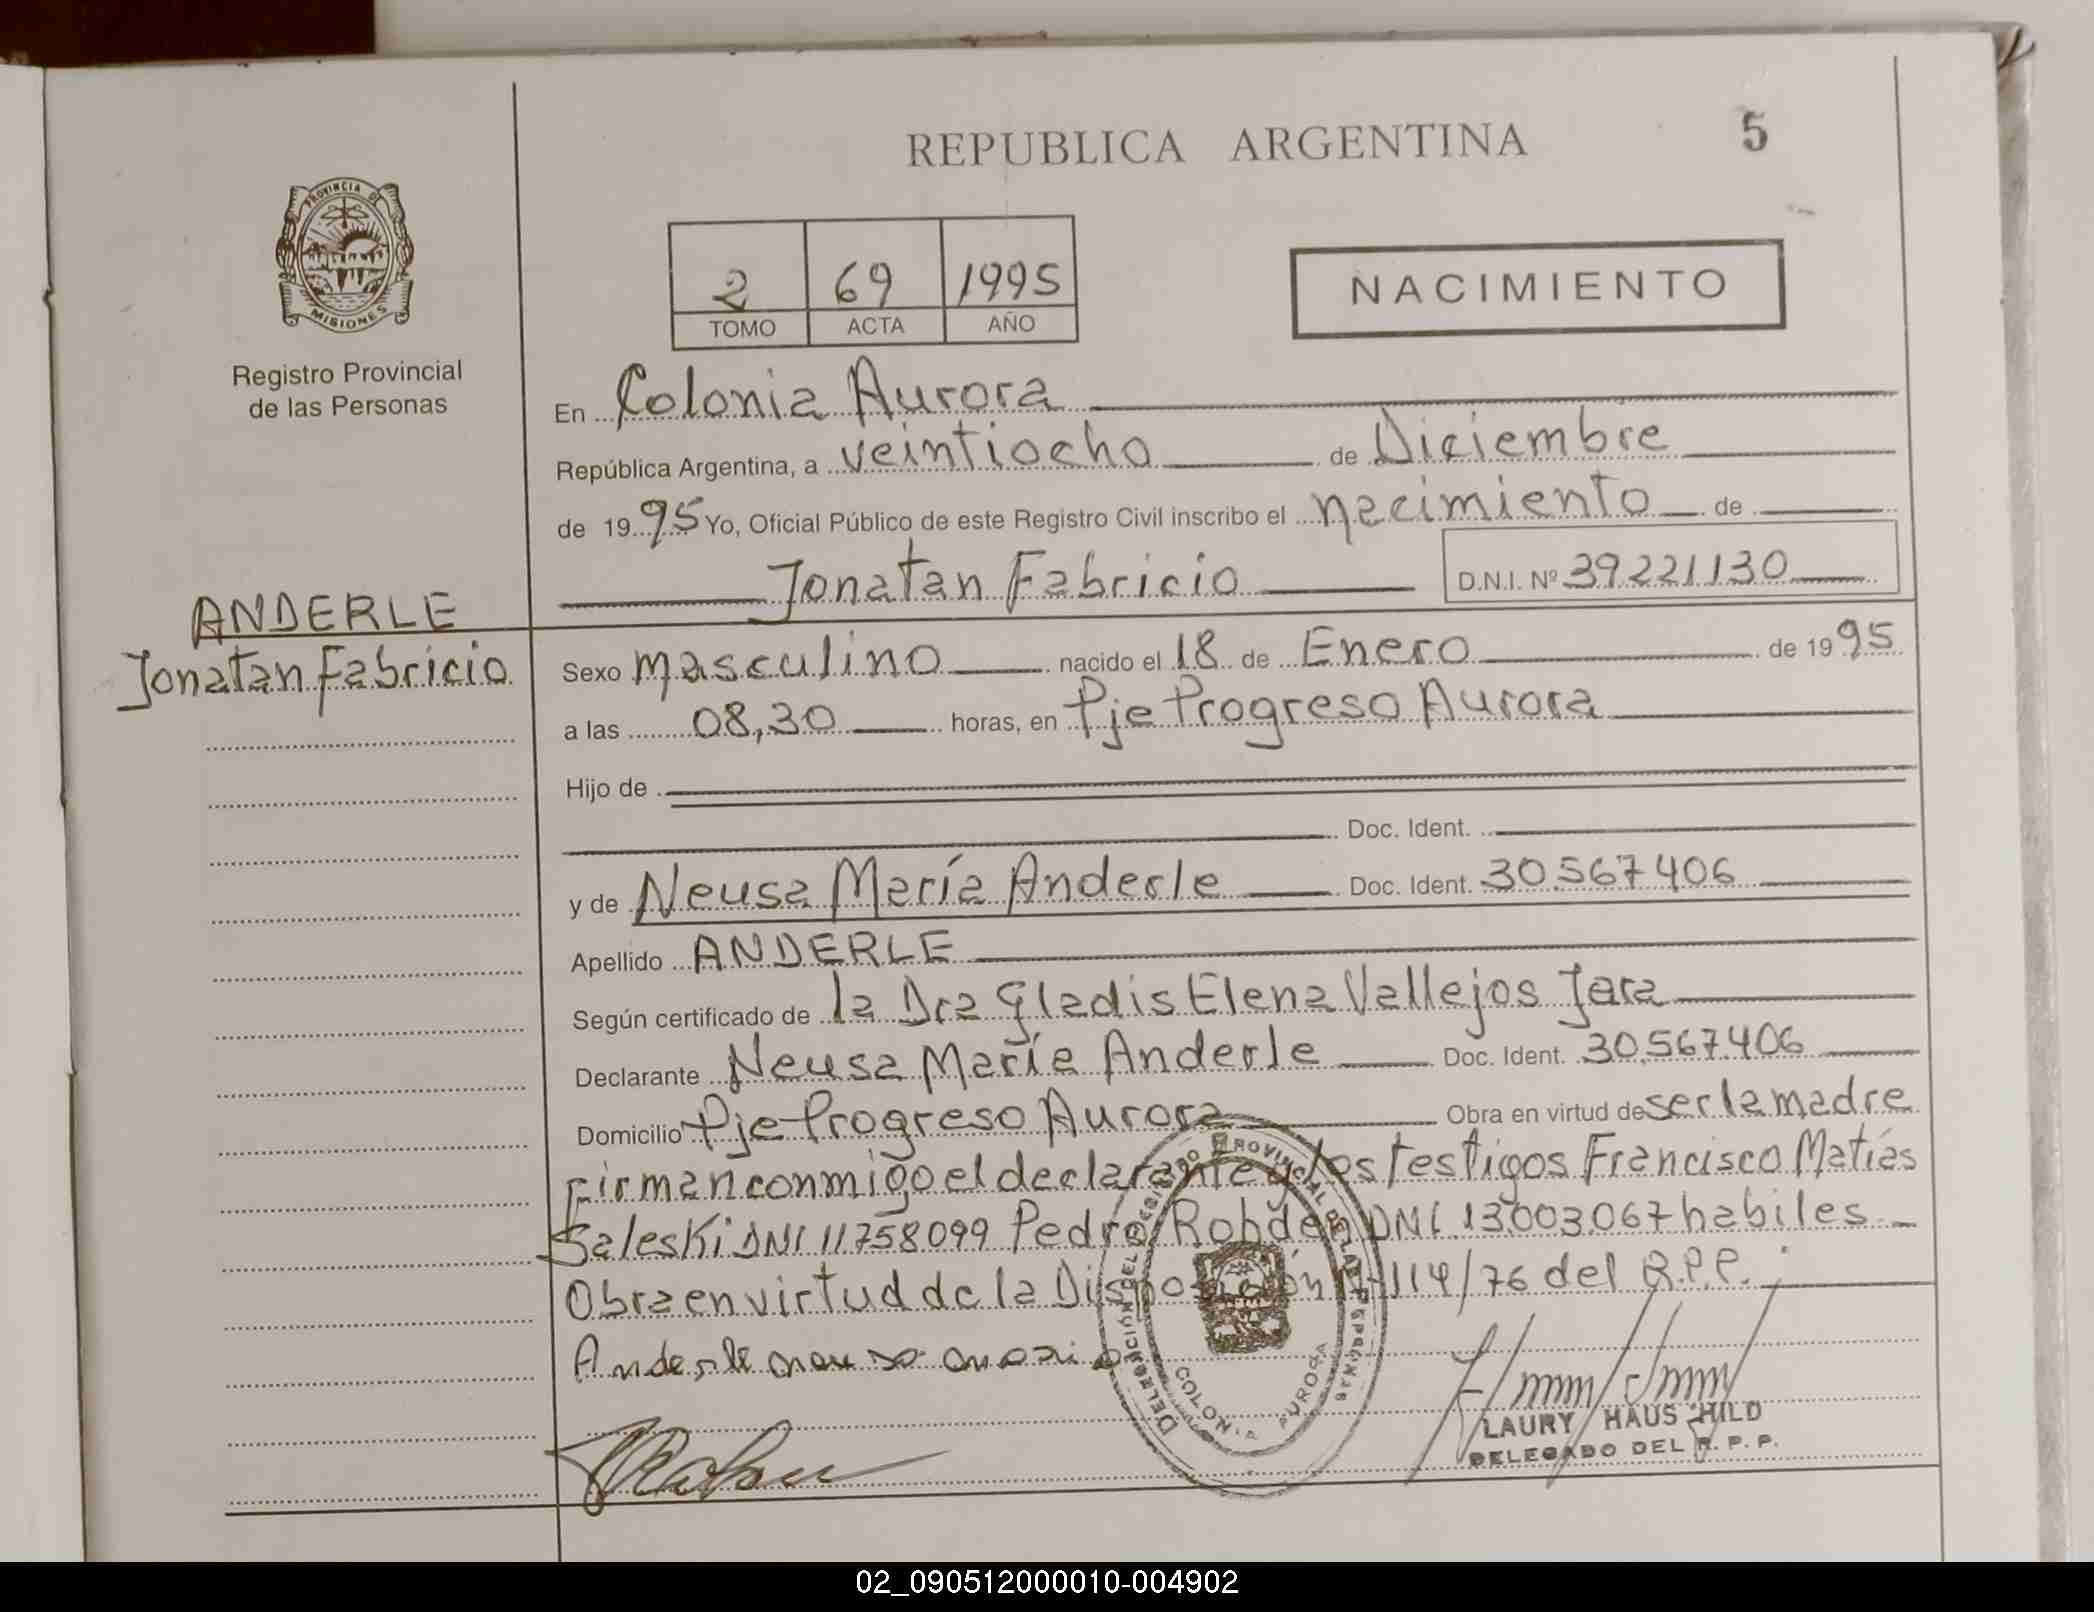 REPUBLICA ARGENTINA
5
PROVINCIA DE
MISIONES
Registro Provincial
de las Personas
2 69 1995
TOMO ACTA AÑO
NACIMIENTO
En Colonia Aurora
República Argentina, a veintiocho de Diciembre
de 1995 Yo, Oficial Público de este Registro Civil inscribo el nacimiento de
Jonatan Fabricio D.N.I. Nº 39221130
ANDERLE
Jonatan Fabricio
Sexo masculino nacido el 18 de Enero de 1995
a las 08,30 horas, en Pje Progreso Aurora
Hijo de
Doc. Ident.
y de Neusa María Anderle Doc. Ident. 30.567406
Apellido ANDERLE
Según certificado de la Dra Gladis Elena Vallejos Jara
Declarante Neusa María Anderle Doc. Ident. 30,567.406
Domicilio Pje Progreso Aurora Obra en virtud de ser la madre
Firman conmigo el declarante y los testigos Francisco Matías
Saleski DNI 11758099 Pedro Rohden DNI 13003067 habiles
Obra en virtud de la Disposición Nº 114/76 del R.P.P.
Anderle neusa maria
DELEGACIÓN DEL REGISTRO PROVINCIAL DE LAS PERSONAS
COLONIA AURORA
LAURY HAUSCHILD
DELEGADO DEL R. P. P.
02_090512000010-004902